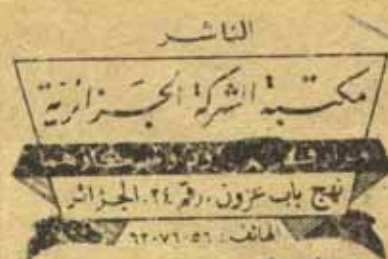 الناشر
مكتبة الشركة الجزائرية
نهج باب عزون. رقم ٢٤. الجزائر
هاتف: ٥٦-٧٦-٦٢